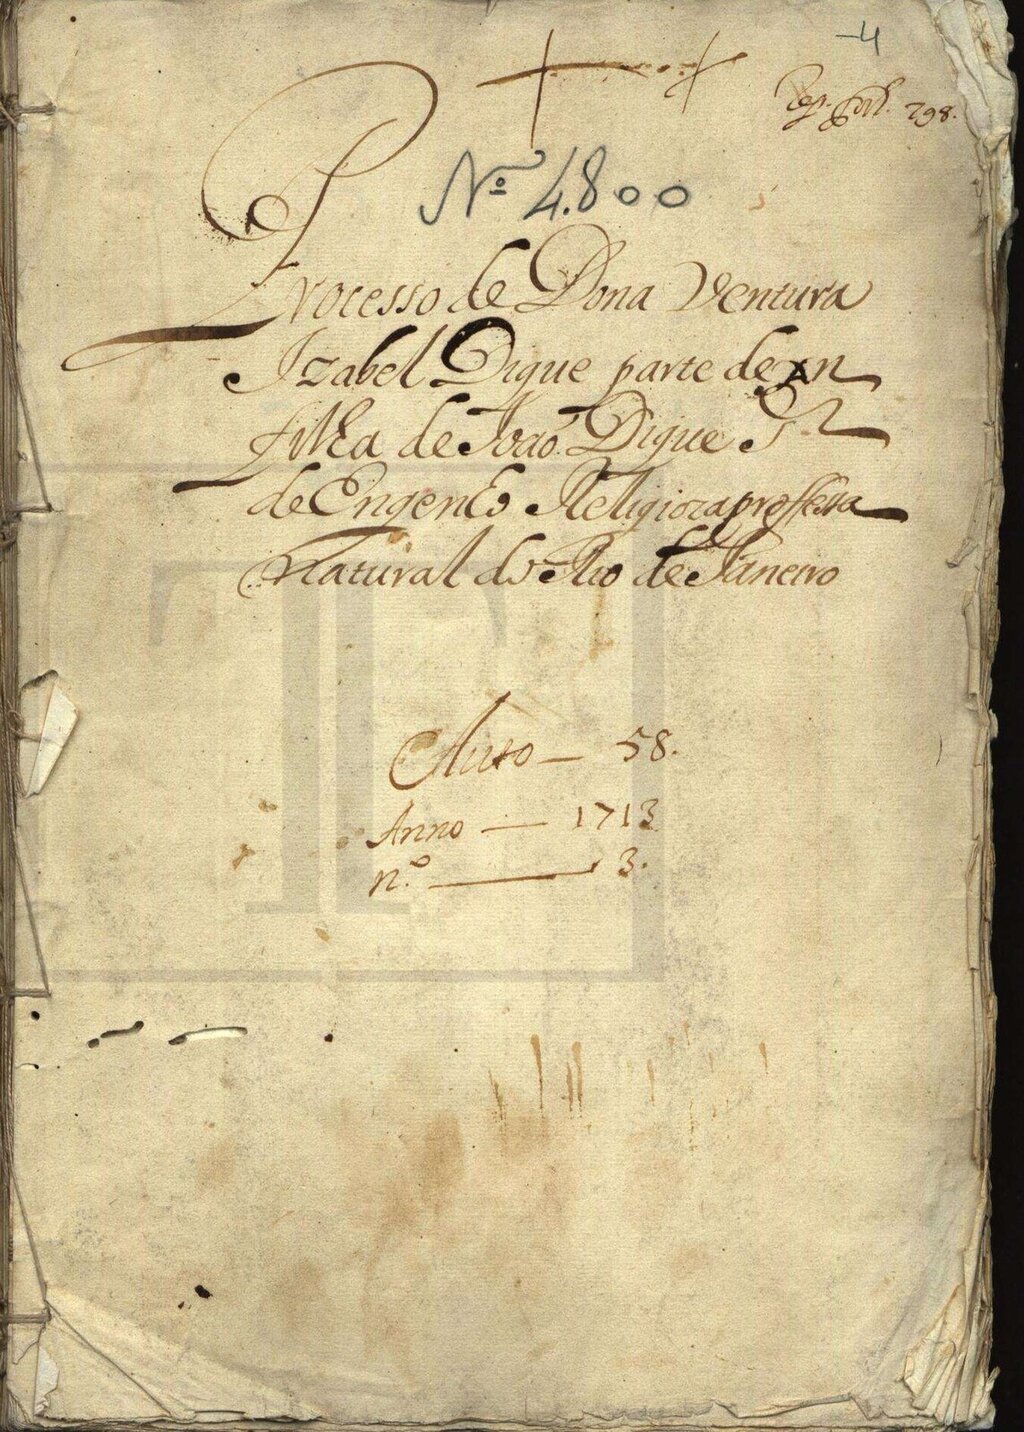 4
Rep. fol. 298.
Nº 4.800
Processo de Dona Ventura
Izabel Dique parte de xn
filha de Joaõ Dique Sr
de Engenho Religioza professa
natural do Rio de Janeiro
Auto — 58.
Anno — 1713
n.º — 3.
TT